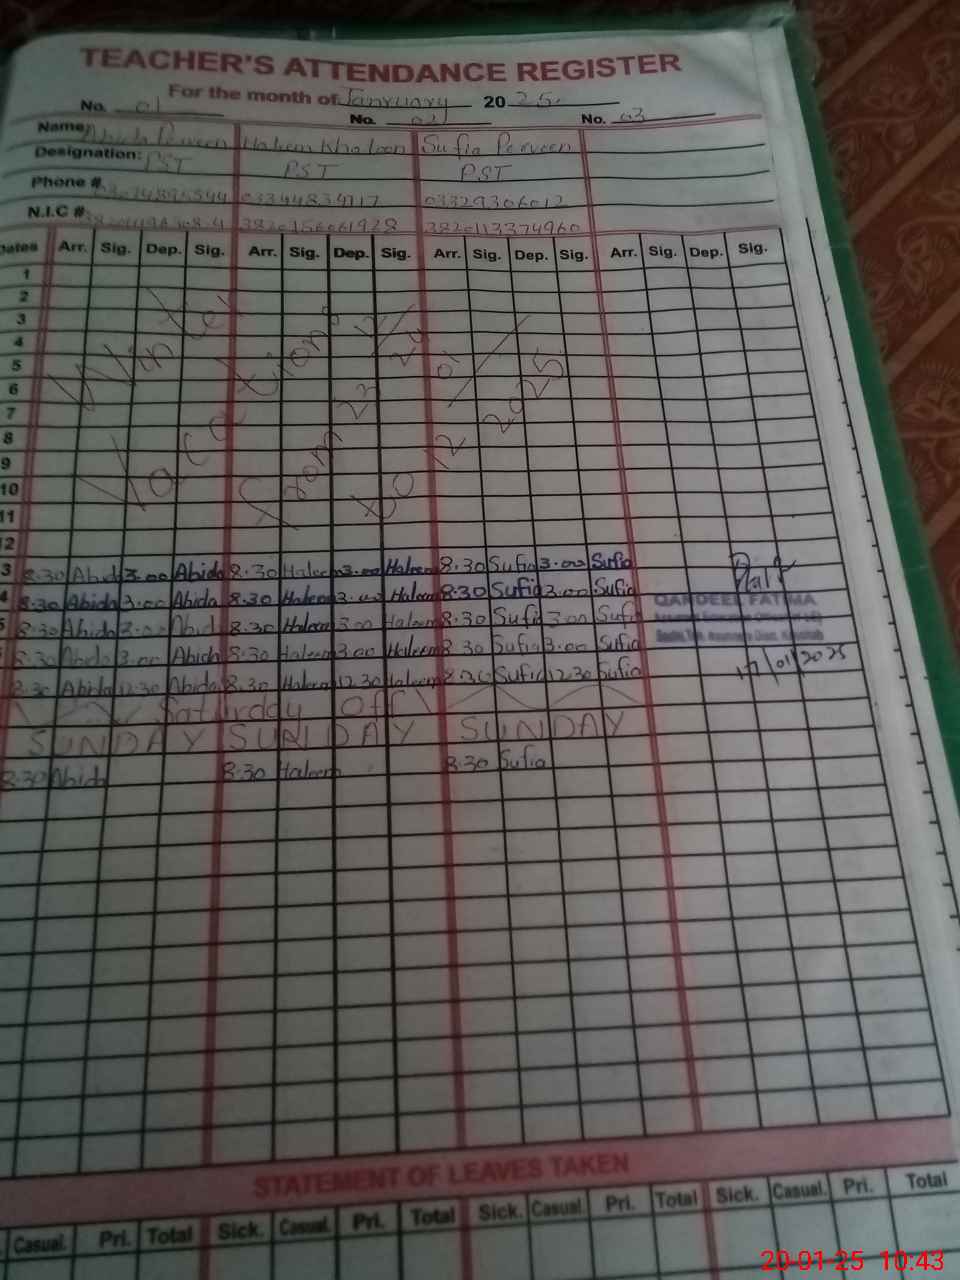 TEACHER'S ATTENDANCE REGISTER
For the month of Janruary 2025.
No. 01 No. 02 No. 03
Name: Abida Perveen Haleem Khatoon Sufia Perveen
Designation: PST PST PST
Phone # 03344834717 03329306012
N.I.C # 3820156061928 3820113374960
Dates Arr. Sig. Dep. Sig. Arr. Sig. Dep. Sig. Arr. Sig. Dep. Sig. Arr. Sig. Dep. Sig.
1
2
3
4
5
6
7
8
9
10
11
12
Winter
Vacations
from 23/12/24
to 12/01/2025
3 8.30 Abida 3.00 Abida 8.30 Haleem 3.00 Haleem 8.30 Sufia 3.00 Sufia
4 8.30 Abida 3.00 Abida 8.30 Haleem 3.00 Haleem 8.30 Sufia 3.00 Sufia
5 8.30 Abida 3.00 Abida 8.30 Haleem 3.00 Haleem 8.30 Sufia 3.00 Sufia
8.30 Abida 3.00 Abida 8.30 Haleem 3.00 Haleem 8.30 Sufia 3.00 Sufia
8.30 Abida 12.30 Abida 8.30 Haleem 12.30 Haleem 8.30 Sufia 12.30 Sufia
QANDEEL FATIMA
17/01/2025
Saturday Off
SUNDAY SUNDAY SUNDAY
8.30 Abida 8.30 Haleem 8.30 Sufia
STATEMENT OF LEAVES TAKEN
Casual. Pri. Total Sick. Casual. Pri. Total Sick. Casual. Pri. Total Sick. Casual. Pri. Total
20-01-25 10:43